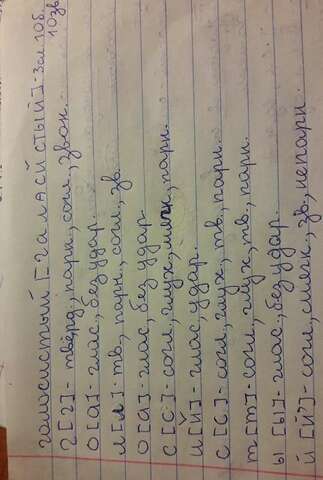 голосистый [галасистый]-3сл 10б.
10зв
г [г]- твёрд., парн., согл, звон.
о [а]- глас, без удар.
л [л]- тв., парн., согл, зв.
о [а]- глас, без удар
с [с']- согл, глух, мягк., парн.
и [и]- глас, удар.
с [с]- согл, глух, тв., парн.
т [т]- согл, глух, тв., парн.
ы [ы]- глас, без удар.
й [й']- согл, мягк., зв., непарн.